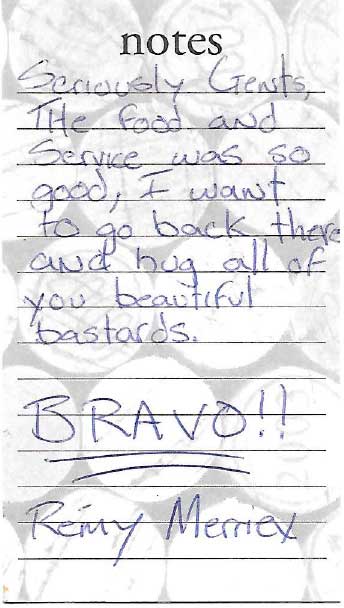 notes
Seriously Gents,
The food and
Service was so
good, I want
to go back there
and hug all of
you beautiful
bastards.
BRAVO!!
Remy Merriex